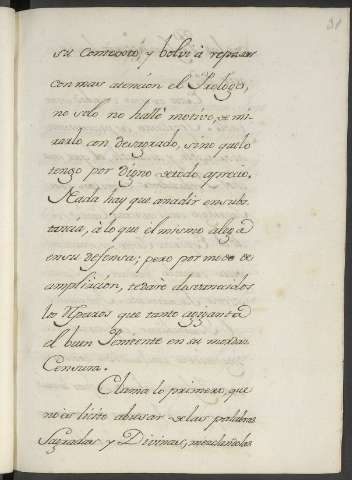 31
su Contexto, y bolví à repasar
con mas atención el Prologo,
no solo no hallè motivo, de mi-
rarlo con desagrado, sino que lo
tengo por digno de todo aprecio.
Nada hay que anadir en subs-
tancia, à lo que èl mismo alega
en su defensa; pero por modo de
ampliación, te daré desvanecidos
los reparos que tanto agiganta
el buen Penitente en su mordaz
Censura.
Clama lo primero, que
no es licito abusar de las palabras
Sagradas y Divinas, mezclandolas